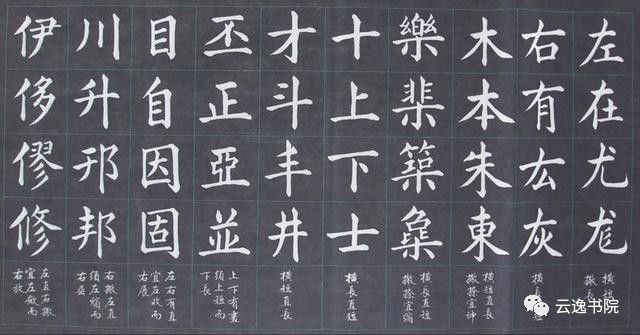 左在尤尨
橫短
撇長
右有厷灰
橫長
木本朱東
橫短直長
撇捺宜伸
樂棐築
橫長直短
撇捺宜縮
十上下士
橫長直短
才斗丰井
橫短直長
丕正亞並
上下有畫
須上短而
下長
目自因固
左右有直
宜左收而
右展
川升邦
右撇左直
須左縮而
右垂
伊侈僇修
左直右撇
宜左斂而
右放
云逸书院